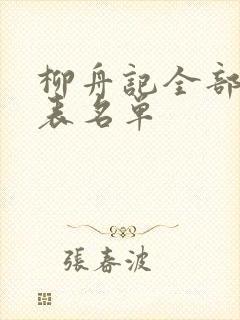 柳舟記全部
表名單
張春波